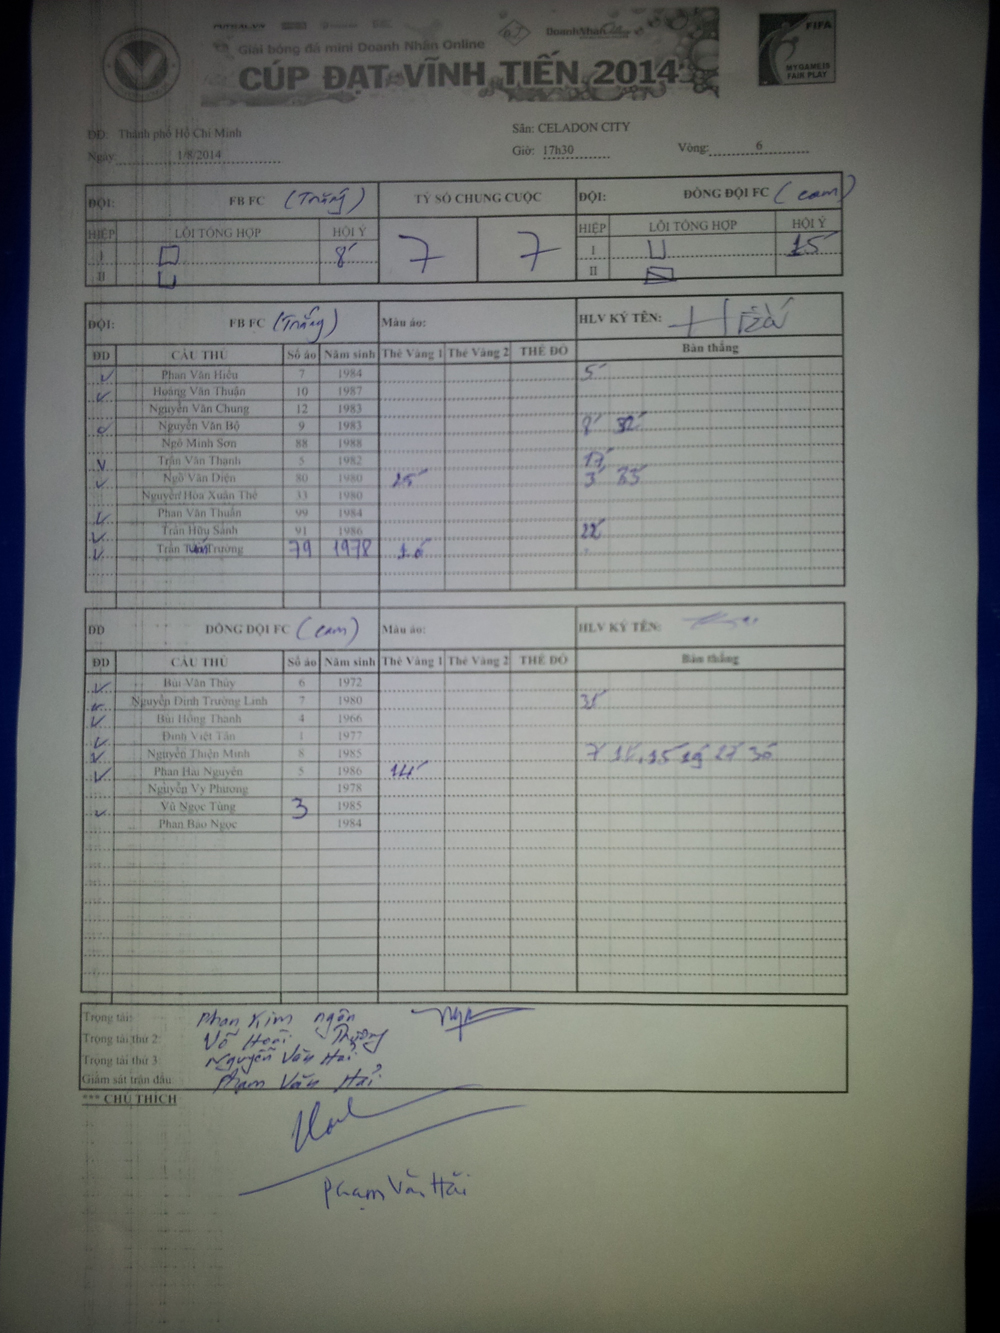 DoanhNhân
FIFA
MY GAME IS
FAIR PLAY
Giải bóng đá mini Doanh Nhân Online
CÚP ĐẠT VĨNH TIẾN 2014
ĐĐ: Thành phố Hồ Chí Minh Sân: CELADON CITY
Ngày: 1/8/2014 Giờ: 17h30 Vòng: 6
ĐỘI: FB FC (Trắng) TỶ SỐ CHUNG CUỘC ĐỘI: ĐỒNG ĐỘI FC (cam)
HIỆP LỖI TỔNG HỢP HỘI Ý 7 7 HIỆP LỖI TỔNG HỢP HỘI Ý
I 8' I 15'
II II
ĐỘI: FB FC (Trắng) Màu áo: HLV KÝ TÊN:
ĐD CẦU THỦ Số áo Năm sinh Thẻ Vàng 1 Thẻ Vàng 2 THẺ ĐỎ Bàn thắng
Phan Văn Hiếu 7 1984 5'
Hoàng Văn Thuận 10 1987
Nguyễn Văn Chung 12 1983
Nguyễn Văn Bộ 9 1983 8' 32'
Ngô Minh Sơn 88 1988
Trần Văn Thạnh 5 1982 17'
Ngô Văn Diện 80 1980 25' 3'
Nguyễn Hòa Xuân Thế 33 1980
Phan Văn Thuấn 99 1984
Trần Hữu Sành 91 1986 22'
Trần Trường 79 1978
ĐD ĐỒNG ĐỘI FC (cam) Màu áo: HLV KÝ TÊN:
ĐD CẦU THỦ Số áo Năm sinh Thẻ Vàng 1 Thẻ Vàng 2 THẺ ĐỎ Bàn thắng
Bùi Văn Thủy 6 1972
Nguyễn Đình Trường Linh 7 1980
Bùi Hồng Thanh 4 1966
Đinh Viết Tân 1 1977
Nguyễn Thiện Minh 8 1985 7' 15' 19' 27' 30'
Phan Hải Nguyên 5 1986 14'
Nguyễn Vy Phương 1978
Vũ Ngọc Tùng 3 1985
Phan Bảo Ngọc 1984
Trọng tài: Phan Kim Ngôn
Trọng tài thứ 2: Võ Hoài Thương
Trọng tài thứ 3 Nguyễn Văn Hai
Giám sát trận đấu: Phạm Văn Hải
*** CHÚ THÍCH
Phạm Văn Hải